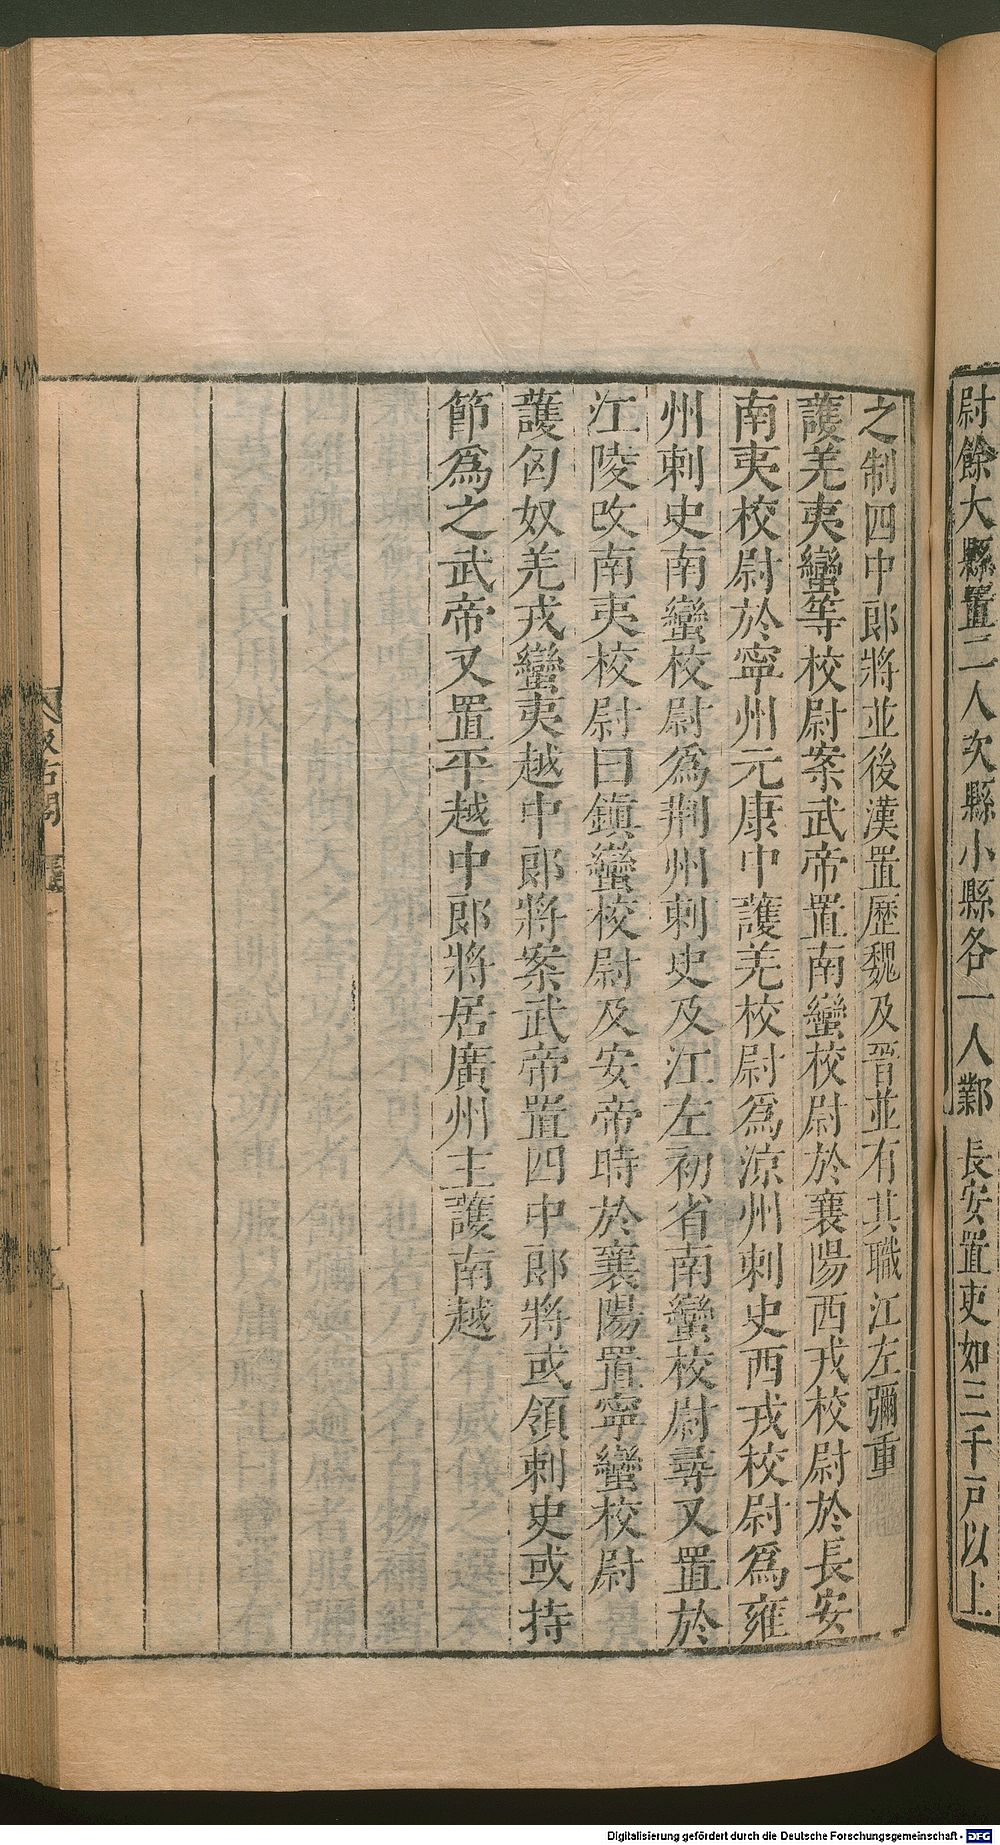 尉餘大縣置二人次縣小縣各一人鄴長安置吏如三千戶以上
之制四中郎將並後漢置歷魏及晉並有其職江左彌重
護羌夷蠻等校尉案武帝置南蠻校尉於襄陽西戎校尉於長安
南夷校尉於寧州元康中護羌校尉爲涼州刺史西戎校尉爲雍
州刺史南蠻校尉爲荆州刺史及江左初省南蠻校尉尋又置於
江陵改南夷校尉曰鎮蠻校尉及安帝時於襄陽置寧蠻校尉
護匈奴羌戎蠻夷越中郎將案武帝置四中郎將或領刺史或持
節爲之武帝又置平越中郎將居廣州主護南越
汲古閣
Digitalisierung gefördert durch die Deutsche Forschungsgemeinschaft - DFG